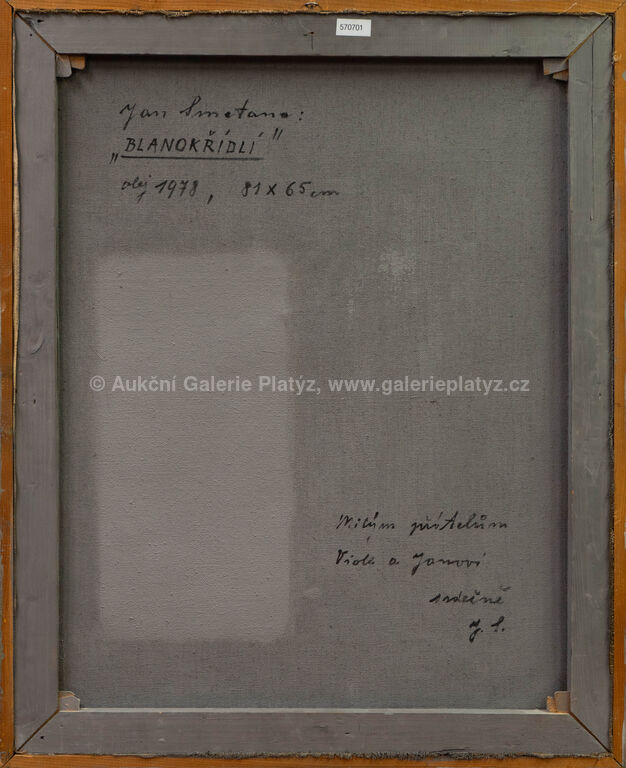 570701
Jan Smetana:
„BLANOKŘÍDLÍ"
olej 1978, 81 x 65 cm
© Aukční Galerie Platýz, www.galerieplatyz.cz
Milým přátelům
a Janovi
srdečně
J. S.